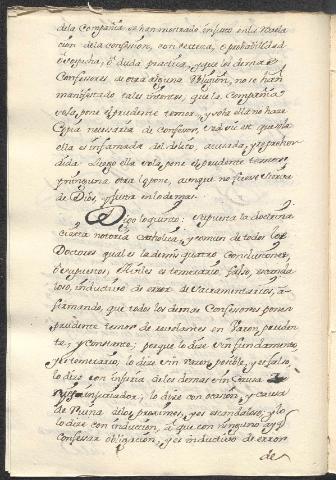 dela Compañia se han mostrado infectos en la Revela
cion dela confession, con certeza, o probabilidad
o sospecha, o duda practica, y que los demas
Confessores de otra alguna Religion, no se han
manifestado tales intentos, que la Compañia
sola pone el prudente temor, y sola ella no hace
Copia necessaria de Confessor, id est que sola
ella es infamada del delito, acusada, y reprehen
dida. Luego ella sola, pone el prudente temor
y ninguna otra lo pone, aunque no fuesse Sierva
de Dios, y justa en lo demas.
Digo lo quinto: supuesta la doctrina
cierta notoria catholica, y comun de todos los
Doctores qual es la demis quatro Conclusiones,
o supuestos, Miles es temerario, falso, escanda
loso, inductivo de error de Sacramentarios, a
firmando, que todos los demas Confessores ponen
prudente temor de revelarles en Varon pruden
te, y constante; porque lo dice sin fundamento
y es temerario, lo dice sin razon posible, y es falso,
lo dice con injuria de los demas sin Causa
y es injuriador; lo dice con ocasion, y causa
de Ruina de los proximos, y es escandaloso; y lo
lo dice con induccion, a que con ninguno ay
Confessar obligacion, y es inductivo de error
de